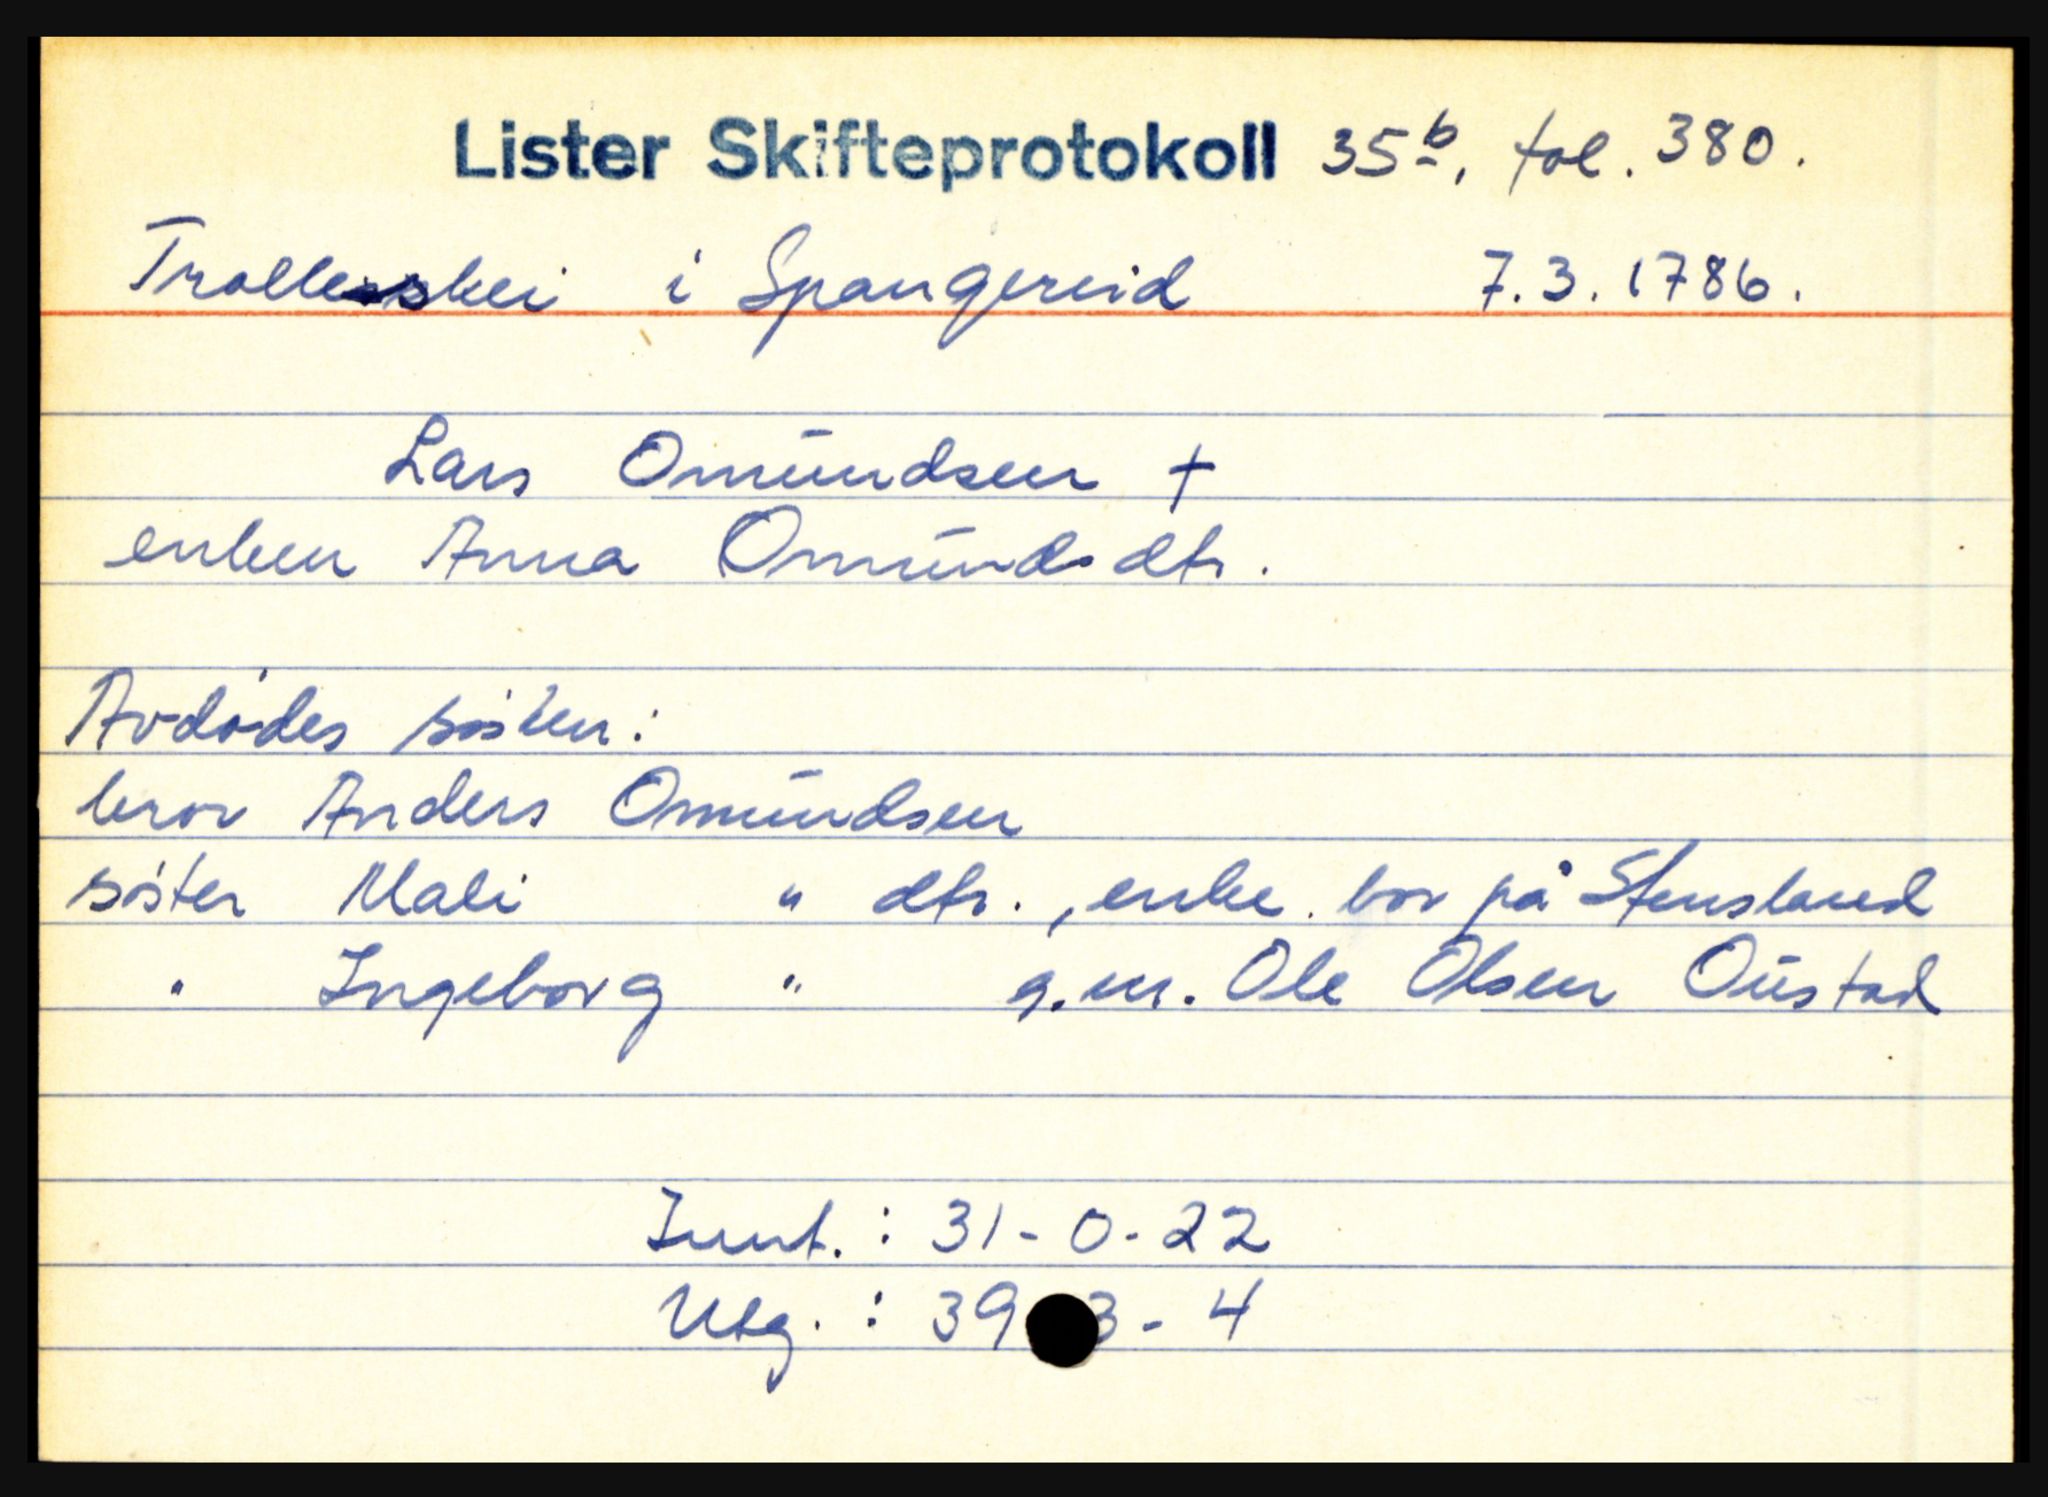 Lister Skifteprotokoll 35b, fol. 380.
Trollesskei i Spangereid 7.3.1786.
Lars Omundsen †
enken Anna Omundsdtr.
Avdödes sösken:
bror Anders Omundsen
söster Mali " dtr., enke. bor på Stensland
" Ingeborg " g.m. Ole Olsen Oustad
Innt.: 31-0-22
Utg.: 39 3-4